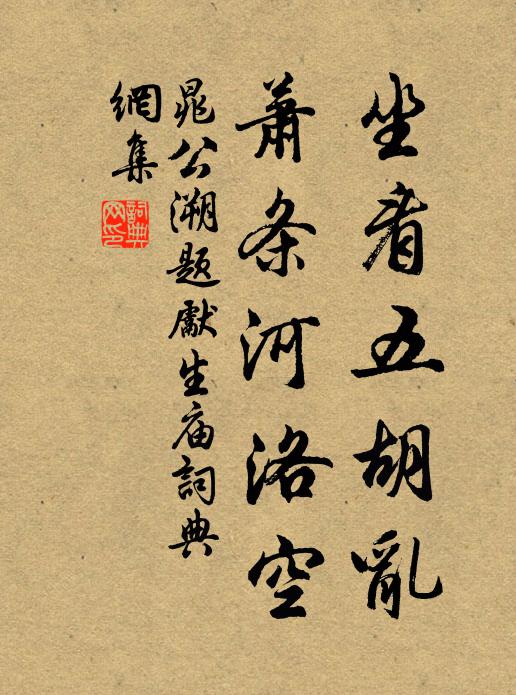 坐看五胡亂
蕭条河洛空
晁公溯题獻生庙詞典
網集
詞典網印